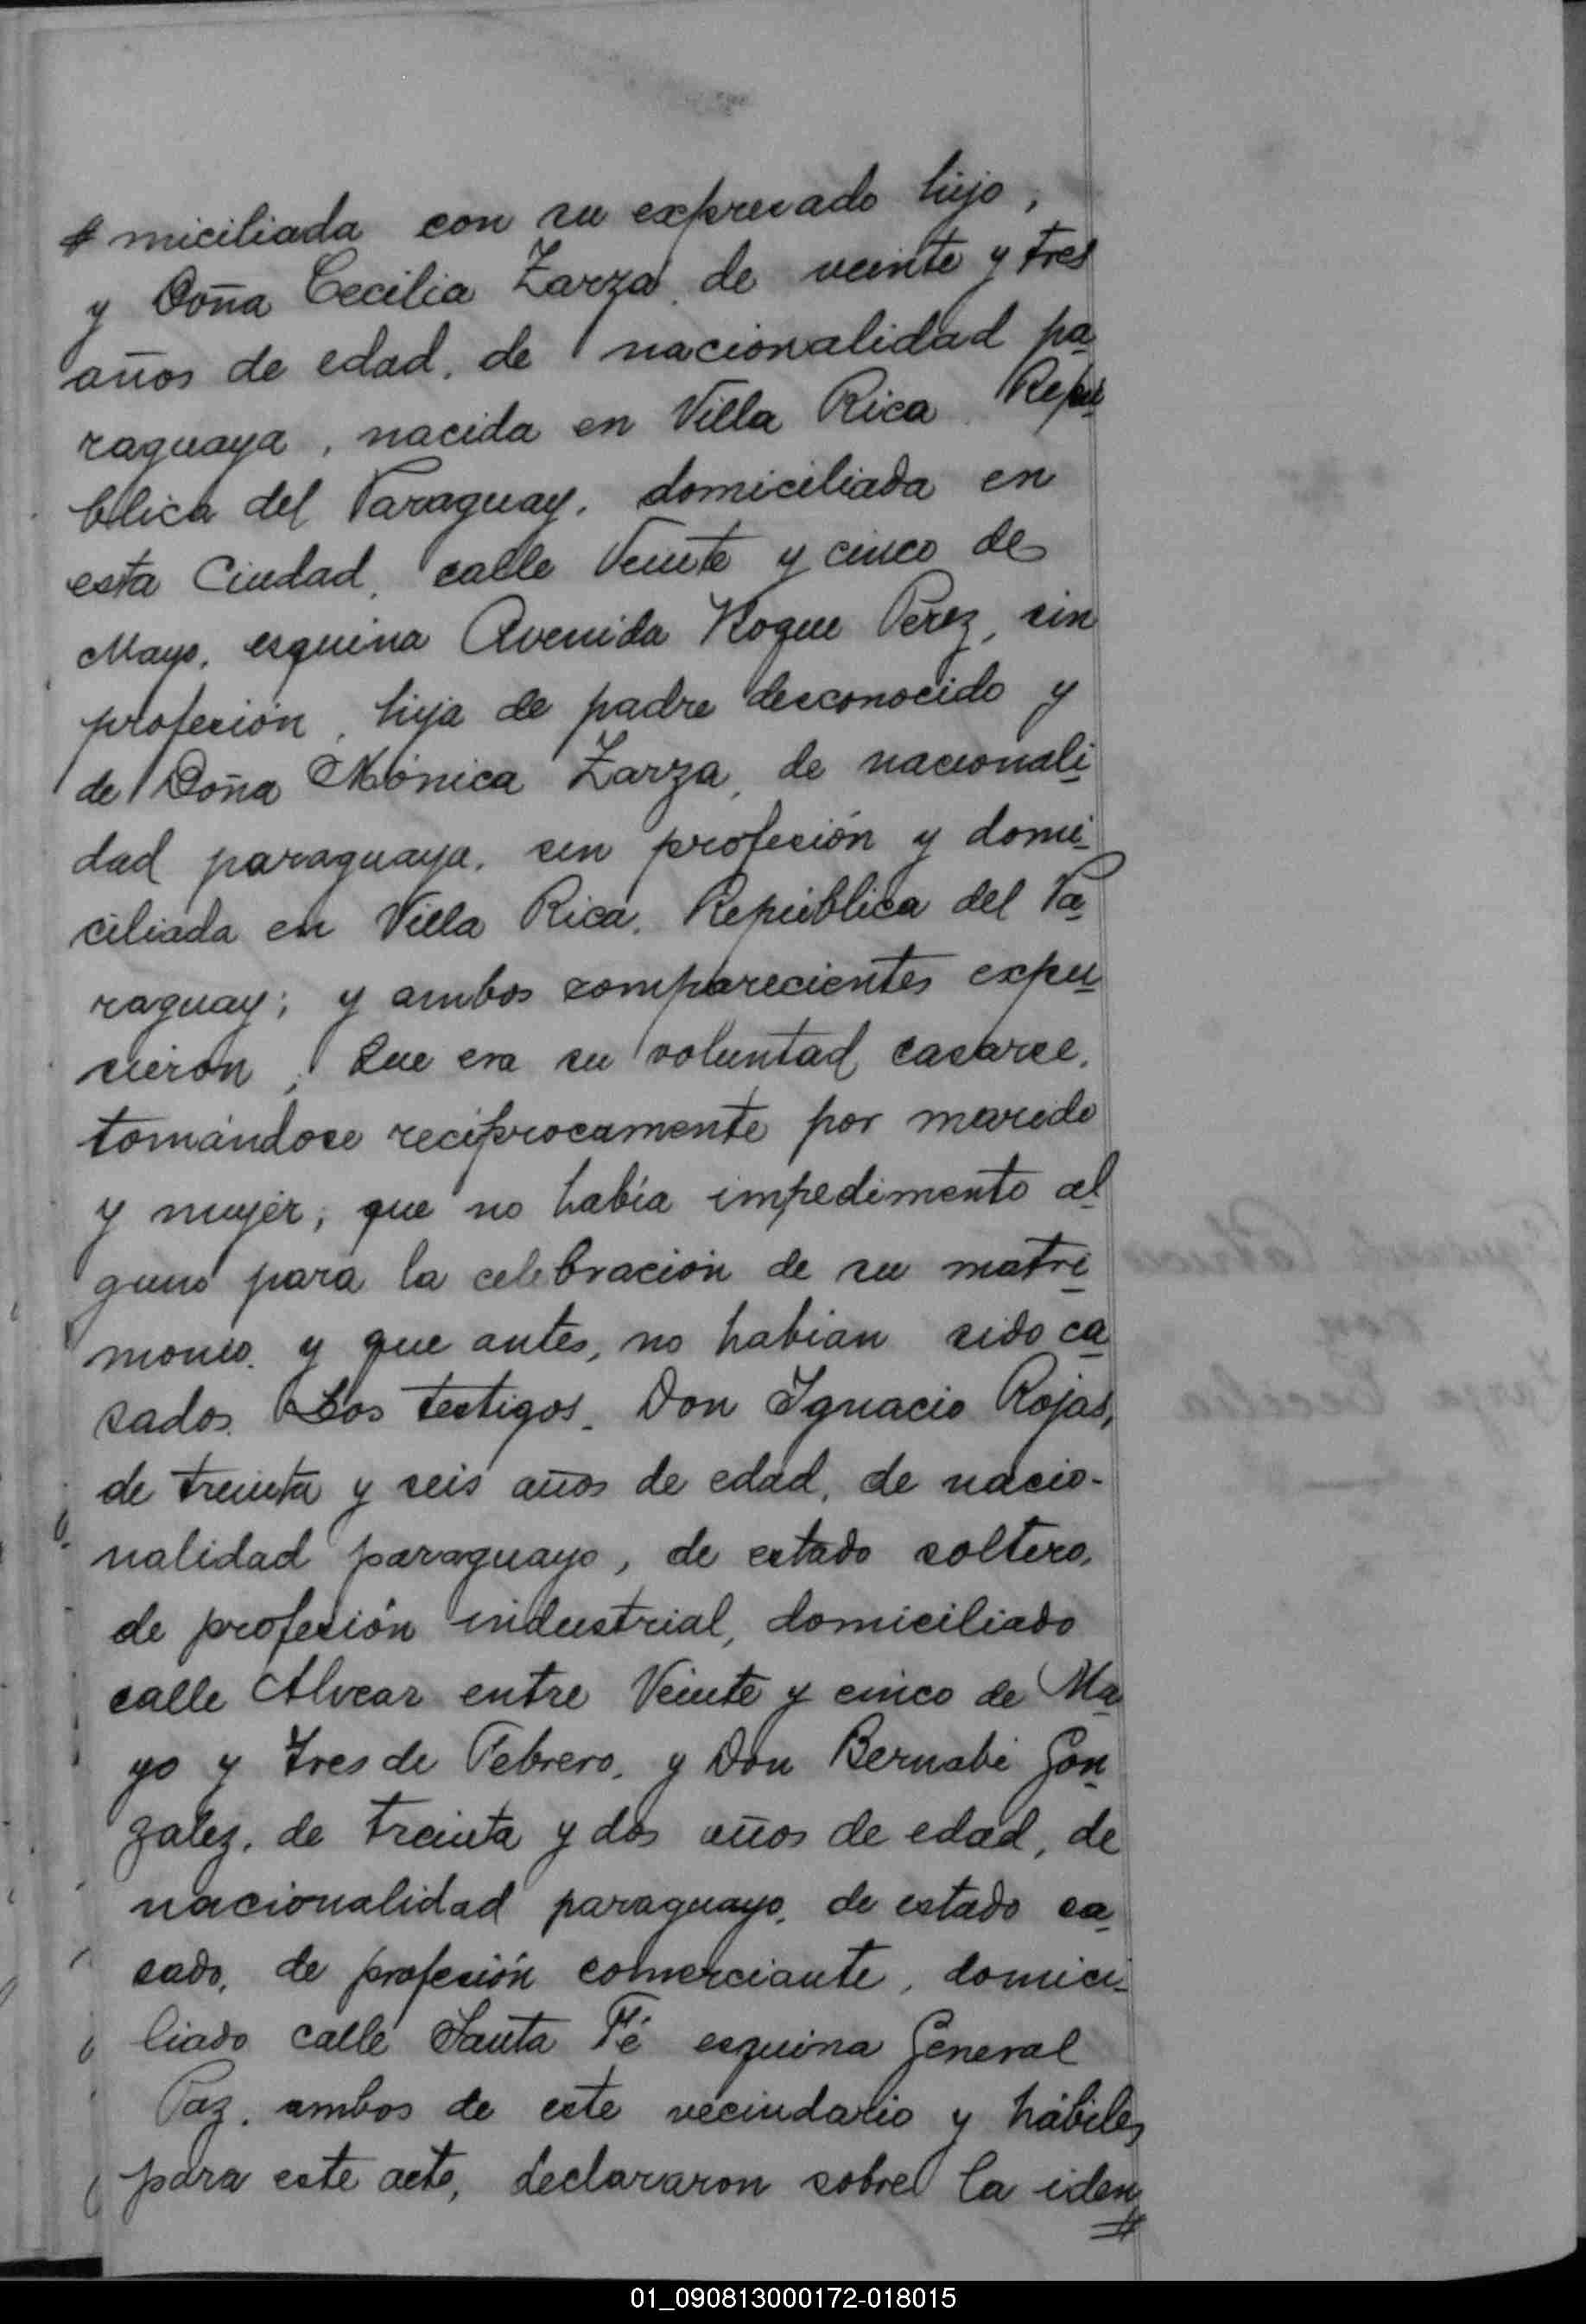 # miciliada con su expresado hijo,
y Doña Cecilia Zarza, de veinte y tres
años de edad, de nacionalidad pa
raguaya, nacida en Villa Rica, Repú
blica del Paraguay, domiciliada en
esta Ciudad, calle Veinte y cinco de
Mayo, esquina Avenida Roque Perez, sin
profesión, hija de padre desconocido y
de Doña Mónica Zarza, de nacionali
dad paraguaya, sin profesión y domi
ciliada en Villa Rica, República del Pa
raguay; y ambos comparecientes expu
sieron; Que era su voluntad casarse,
tomándose recíprocamente por marido
y mujer, que no había impedimento al
guno para la celebración de su matri
monio, y que antes, no habían sido ca
sados. Los testigos, Don Ignacio Rojas,
de treinta y seis años de edad, de nacio-
nalidad paraguayo, de estado soltero,
de profesión industrial, domiciliado
calle Alvear entre Veinte y cinco de Ma
yo y Tres de Febrero, y Don Bernabé Gon
zalez, de treinta y dos años de edad, de
nacionalidad paraguayo, de estado ca
sado, de profesión comerciante, domici
liado calle Santa Fé esquina General
Paz, ambos de este vecindario y hábiles
para este acto, declararon sobre la iden
#
01_090813000172-018015